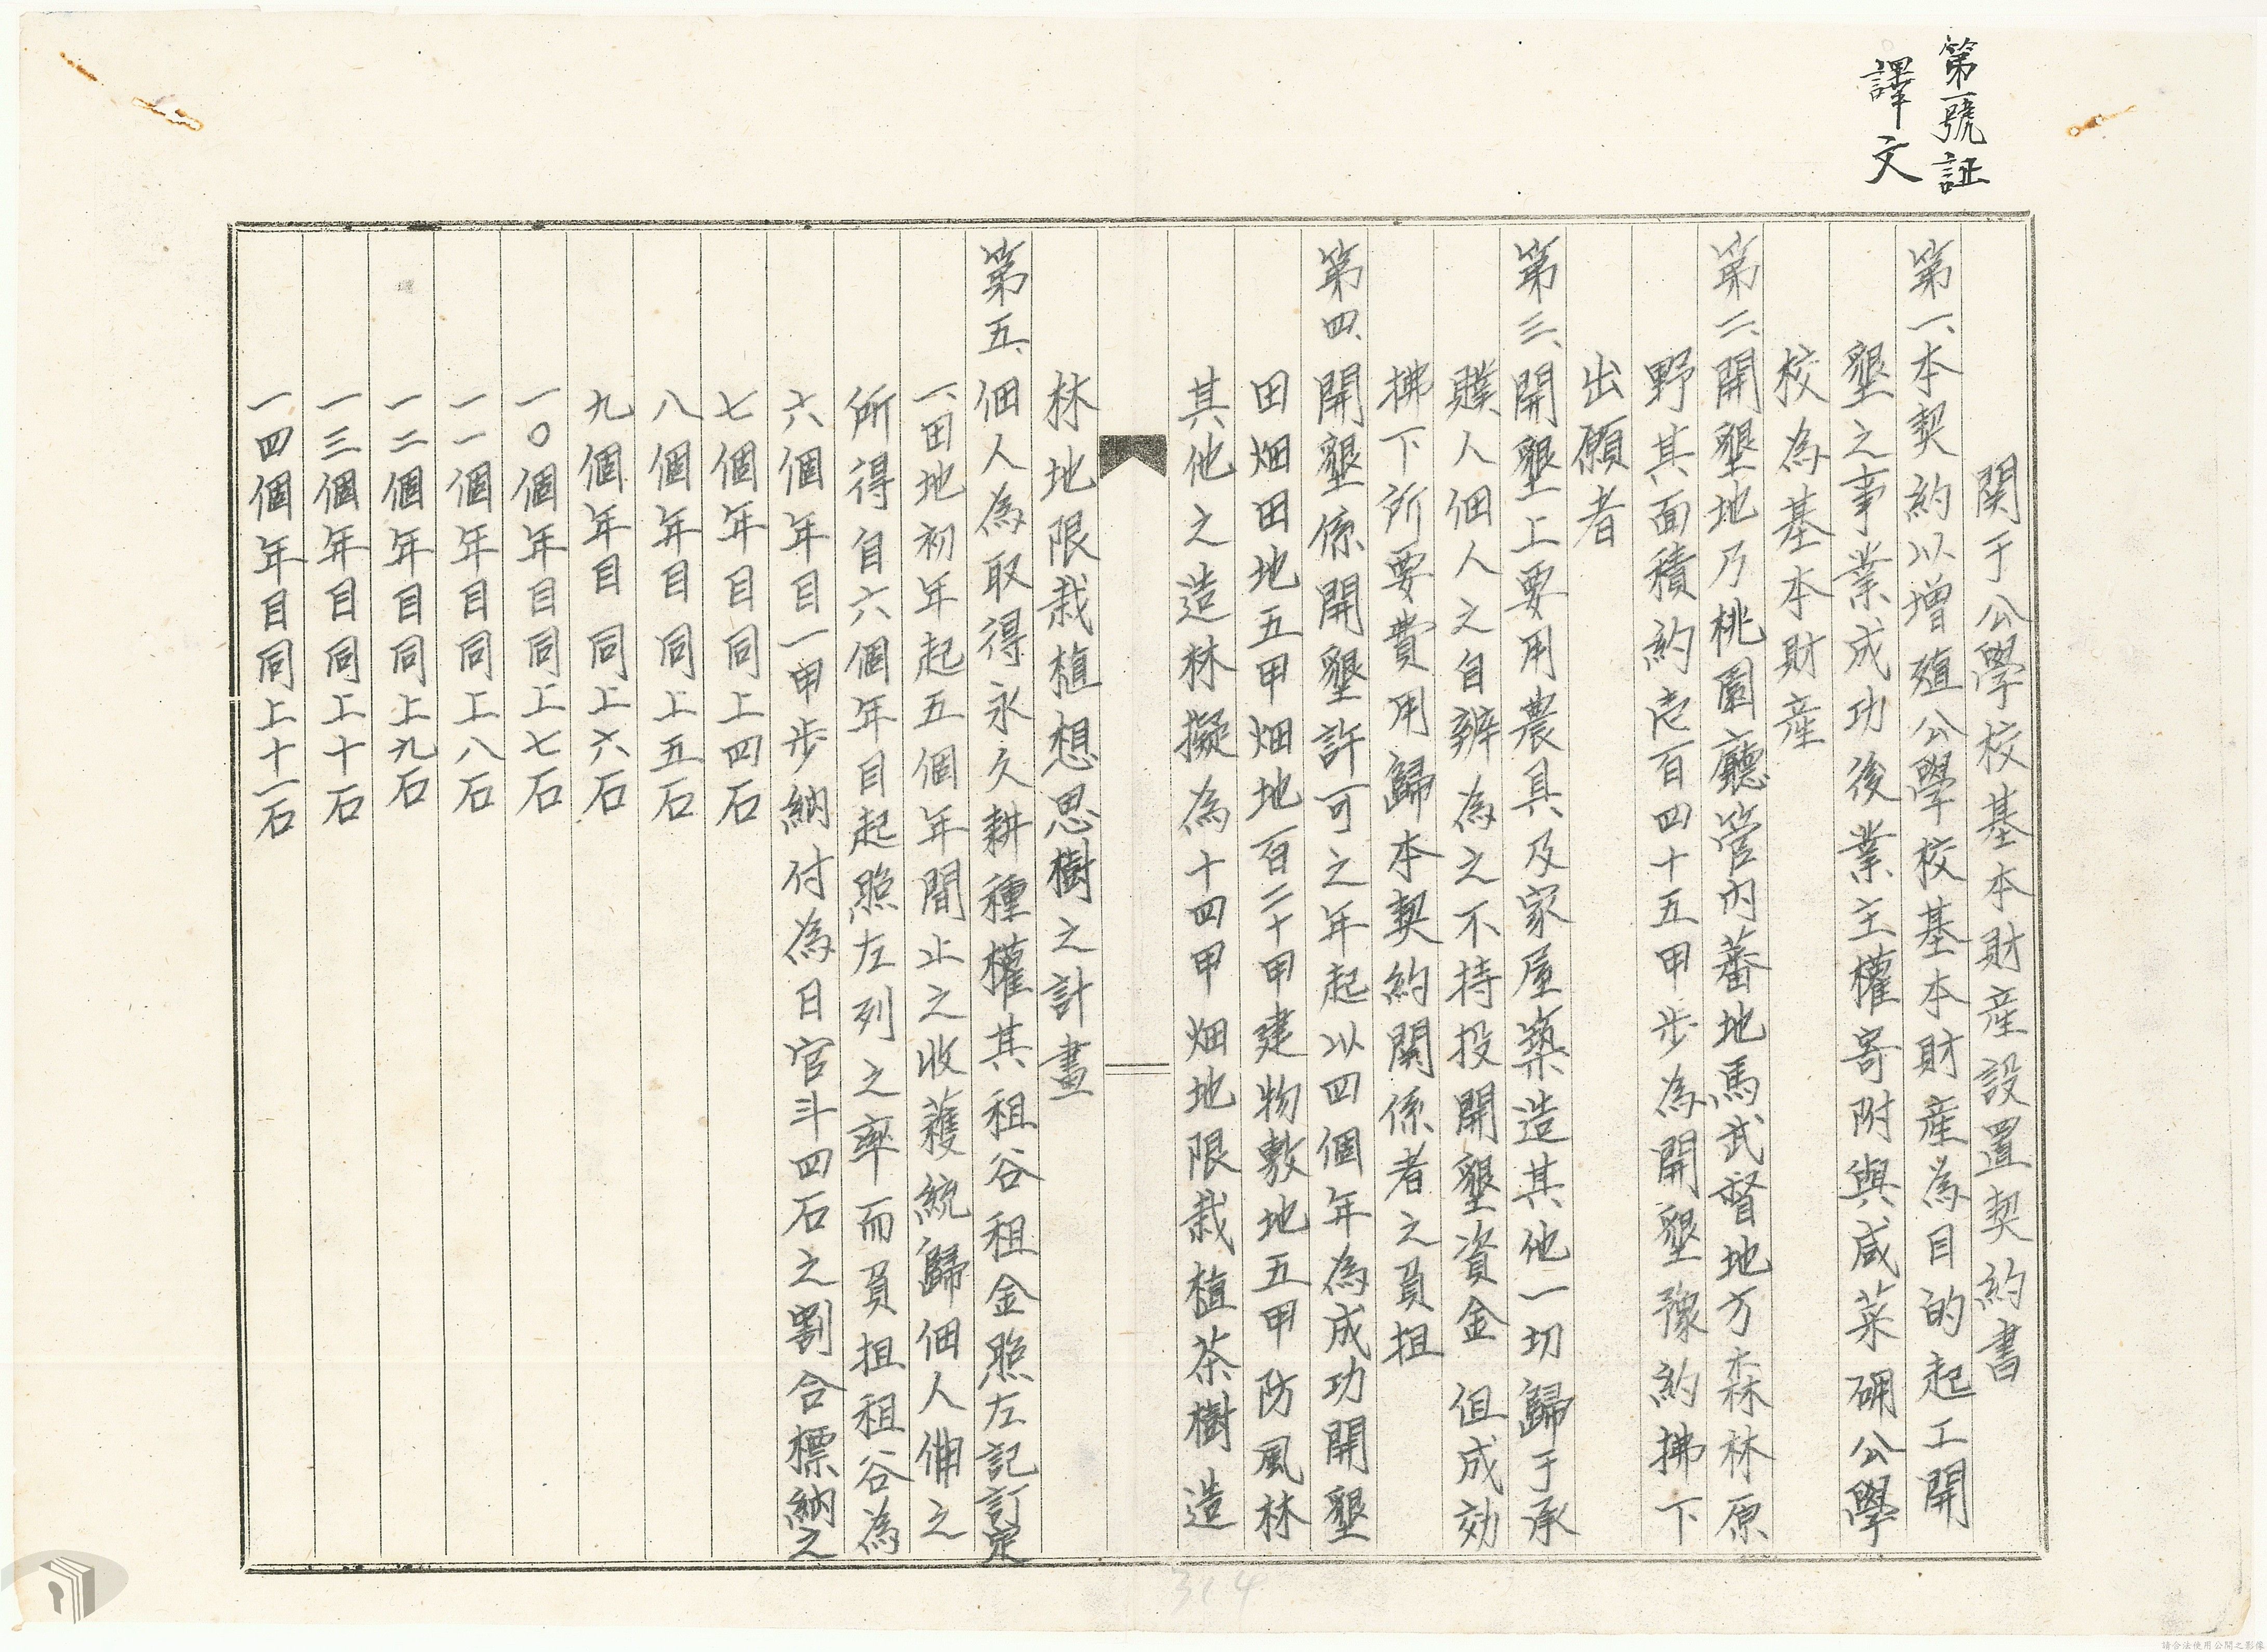 第一號証
譯文
関于公學校基本財産設置契約書
第一、本契約以增殖公學校基本財産為目的起工開
墾之事業成功後業主權寄附與咸菜硼公學
校為基本財産
第二、開墾地乃桃園廳管内蕃地馬武督地方森林原
野其面積約壱百四十五甲步為開墾豫約拂下
出願者
第三、開墾上要用農具及家屋築造其他一切歸于承
贌人佃人之自辨為之不持投開墾資金 但成効
拂下所要費用歸本契約関係者之負担
第四、開墾係開墾許可之年起以四個年為成功開墾
田畑田地五甲畑地百二十甲建物敷地五甲防風林
其他之造林擬為十四甲畑地限栽植茶樹造
林地限栽植想思樹之計畫
第五、佃人為取得永久耕種權其租谷租金照左記訂定
一、田地初年起五個年間止之收蒦統歸佃人佣之
所得自六個年目起照左列之率而負担租谷為
六個年目一甲步納付為日官斗四石之割合標納之
七個年目同上四石
八個年目同上五石
九個年目同上六石
一〇個年目同上七石
一一個年目同上八石
一二個年目同上九石
一三個年目同上十石
一四個年目同上十一石
314
請合法使用公開之影像